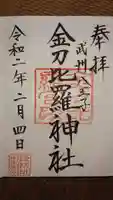 奉拝
武州八王子
金刀比羅神社
令和二年二月四日